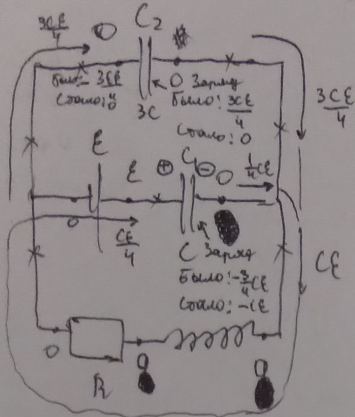 3CE/4
0
C₂
Было: -3CE/4
Стало: 0
0
3C
Заряд
Было: 3CE/4
Стало: 0
3CE/4
E
E
+
-
C₁
0
1/4 CE
0
CE/4
C
Заряд
Было: -3/4 CE
Стало: -CE
CE
0
R
0
0